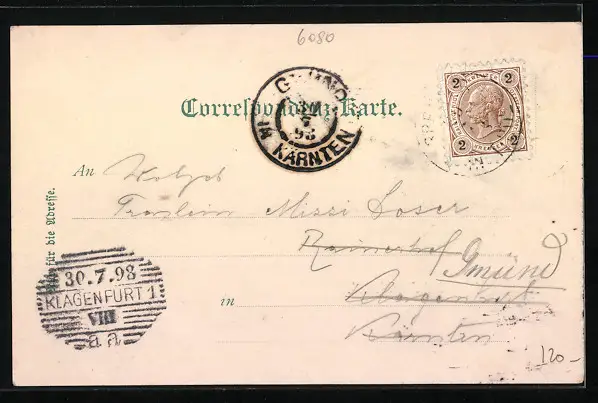 6080
2 2
2 2
Correspondenz-Karte.
GMÜND
IN KÄRNTEN
An
Fräulein Mizzi Loser
Rainerhof
Gmünd
in Klagenfurt
Kärnten
für die Adresse.
30.7.98
KLAGENFURT 1
VIII
a a
120-